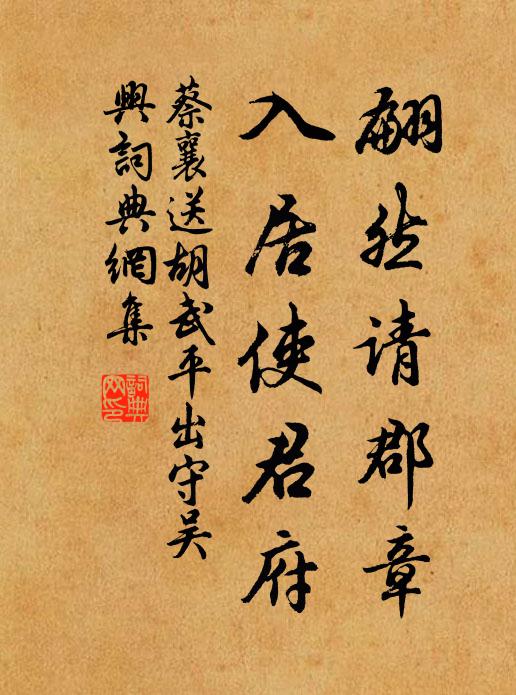 翩然请郡章
入居使君府
蔡襄送胡武平出守吴
興詞典網集
詞典
网印